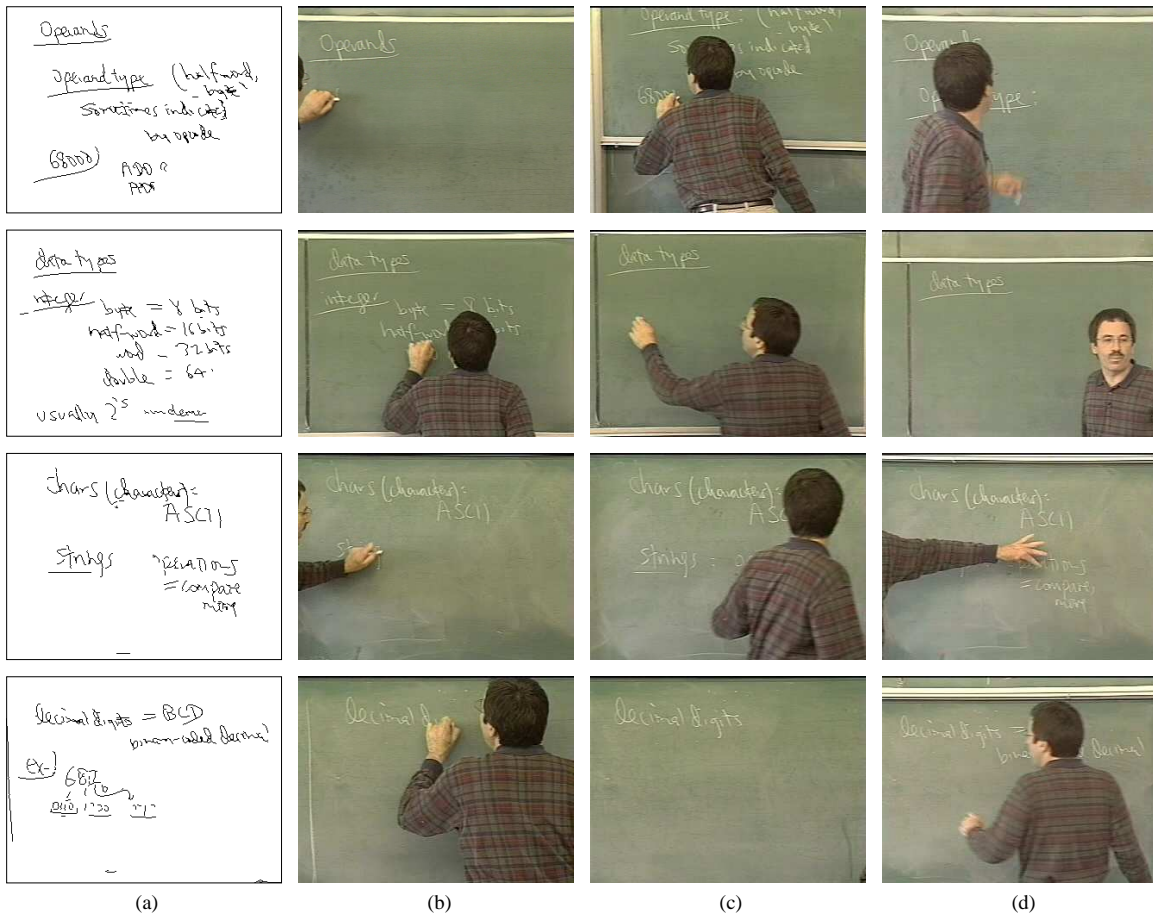 Operands
Operand type (halfword,
- byte)
Sometimes indicated
by opcode
68000) ADD
ADD
Operands
Operand type: (halfword,
- byte)
Sometimes indicated
by opcode
68000
Operands
Operand type:
data types
integer byte = 8 bits
half-word = 16 bits
word = 32 bits
double = 64
usually 2's
data types
integer byte = 8 bits
half-word bits
data types
data types
chars (character):
ASCII
strings operations
= compare
move
chars (character):
ASCII
st
chars (character):
ASC
strings =
chars (character):
ASCII
= compare,
move
decimal digits = BCD
binary-coded decimal
Ex-) 682
0110, 1000
decimal di
decimal digits
decimal digits =
decimal
(a) (b) (c) (d)